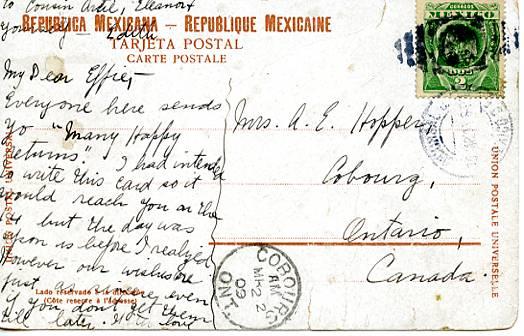 to Cousin Artel, Eleanor
yourself Edith
REPUBLICA MEXICANA — REPUBLIQUE MEXICAINE
TARJETA POSTAL
CARTE POSTALE
My Dear Effie,
Everyone here sends
yo "Many Happy
Returns." I had intended
to write this card so it
would reach you on the
4 but the day was
upon us before I realized
However our wishes are
just as sincere even
if you don't get them
till later. With love
Lado reservado a la dirección
(Côte reservé à l'adresse)
UNION POSTAL UNIVERSAL
Mrs. A. E. Hopper,
Cobourg,
Ontario,
Canada.
UNION POSTALE UNIVERSELLE
CORREOS
MEXICO
2
COBOURG
AM
MR 2 2
09
ONT